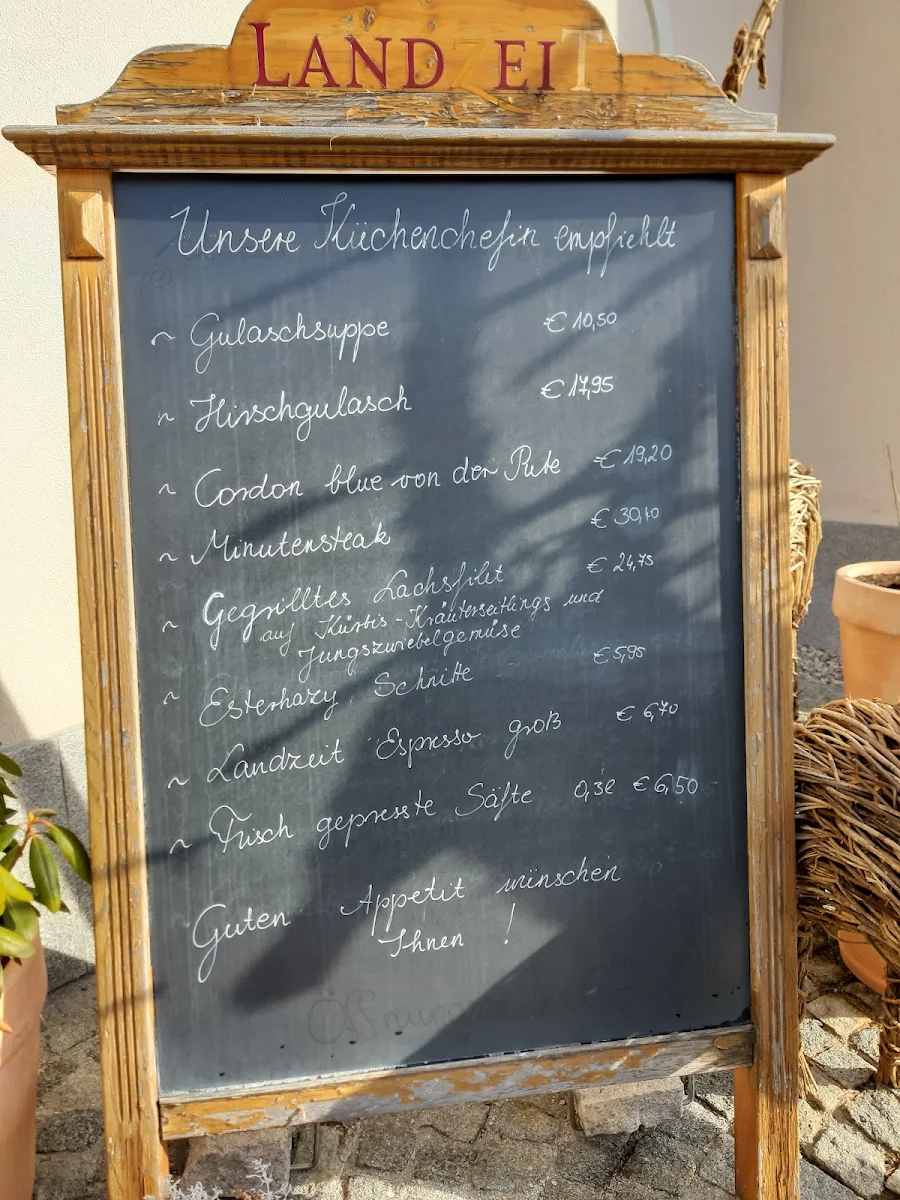 LANDZEIT
Unsere Küchenchefin empfiehlt
~ Gulaschsuppe € 10,50
~ Hirschgulasch € 17,95
~ Cordon blue von der Pute € 19,20
~ Minutensteak € 30,10
~ Gegrilltes Lachsfilet € 24,75
auf Kürbis-Kräuterseitlings und
Jungszwiebelgemüse
~ Esterhazy Schnitte € 5,95
~ Landzeit Espresso groß € 6,70
~ Frisch gepresste Säfte 0,3l € 6,50
Guten Appetit wünschen
Ihnen !